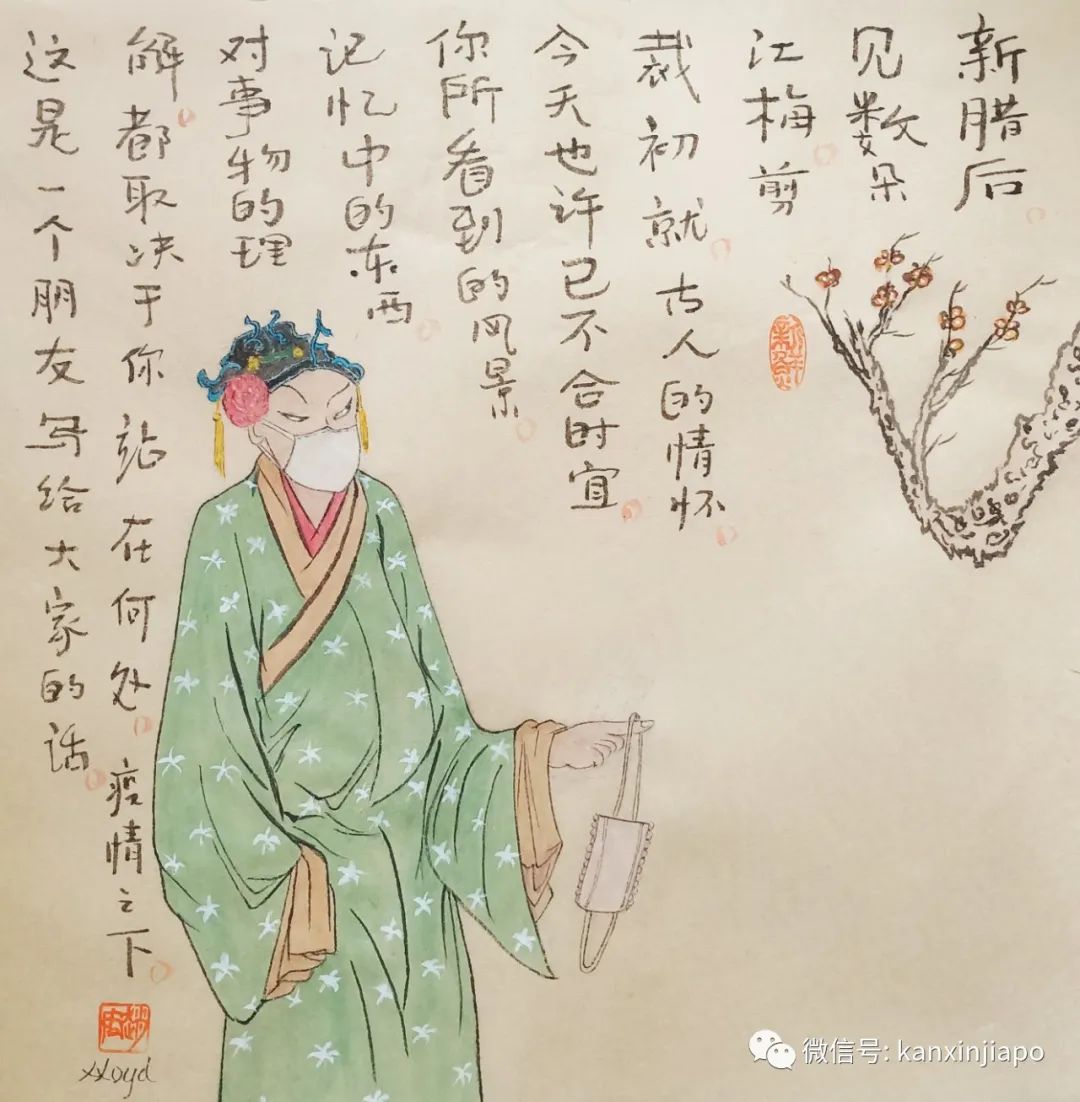 新腊后
见数朵
江梅剪
裁初就 古人的情怀
今天也许已不合时宜
你所看到的风景
记忆中的东西
对事物的理
解都取决于你站在何处 疫情之下
这是一个朋友写给大家的话
微信号: kanxinjiapo